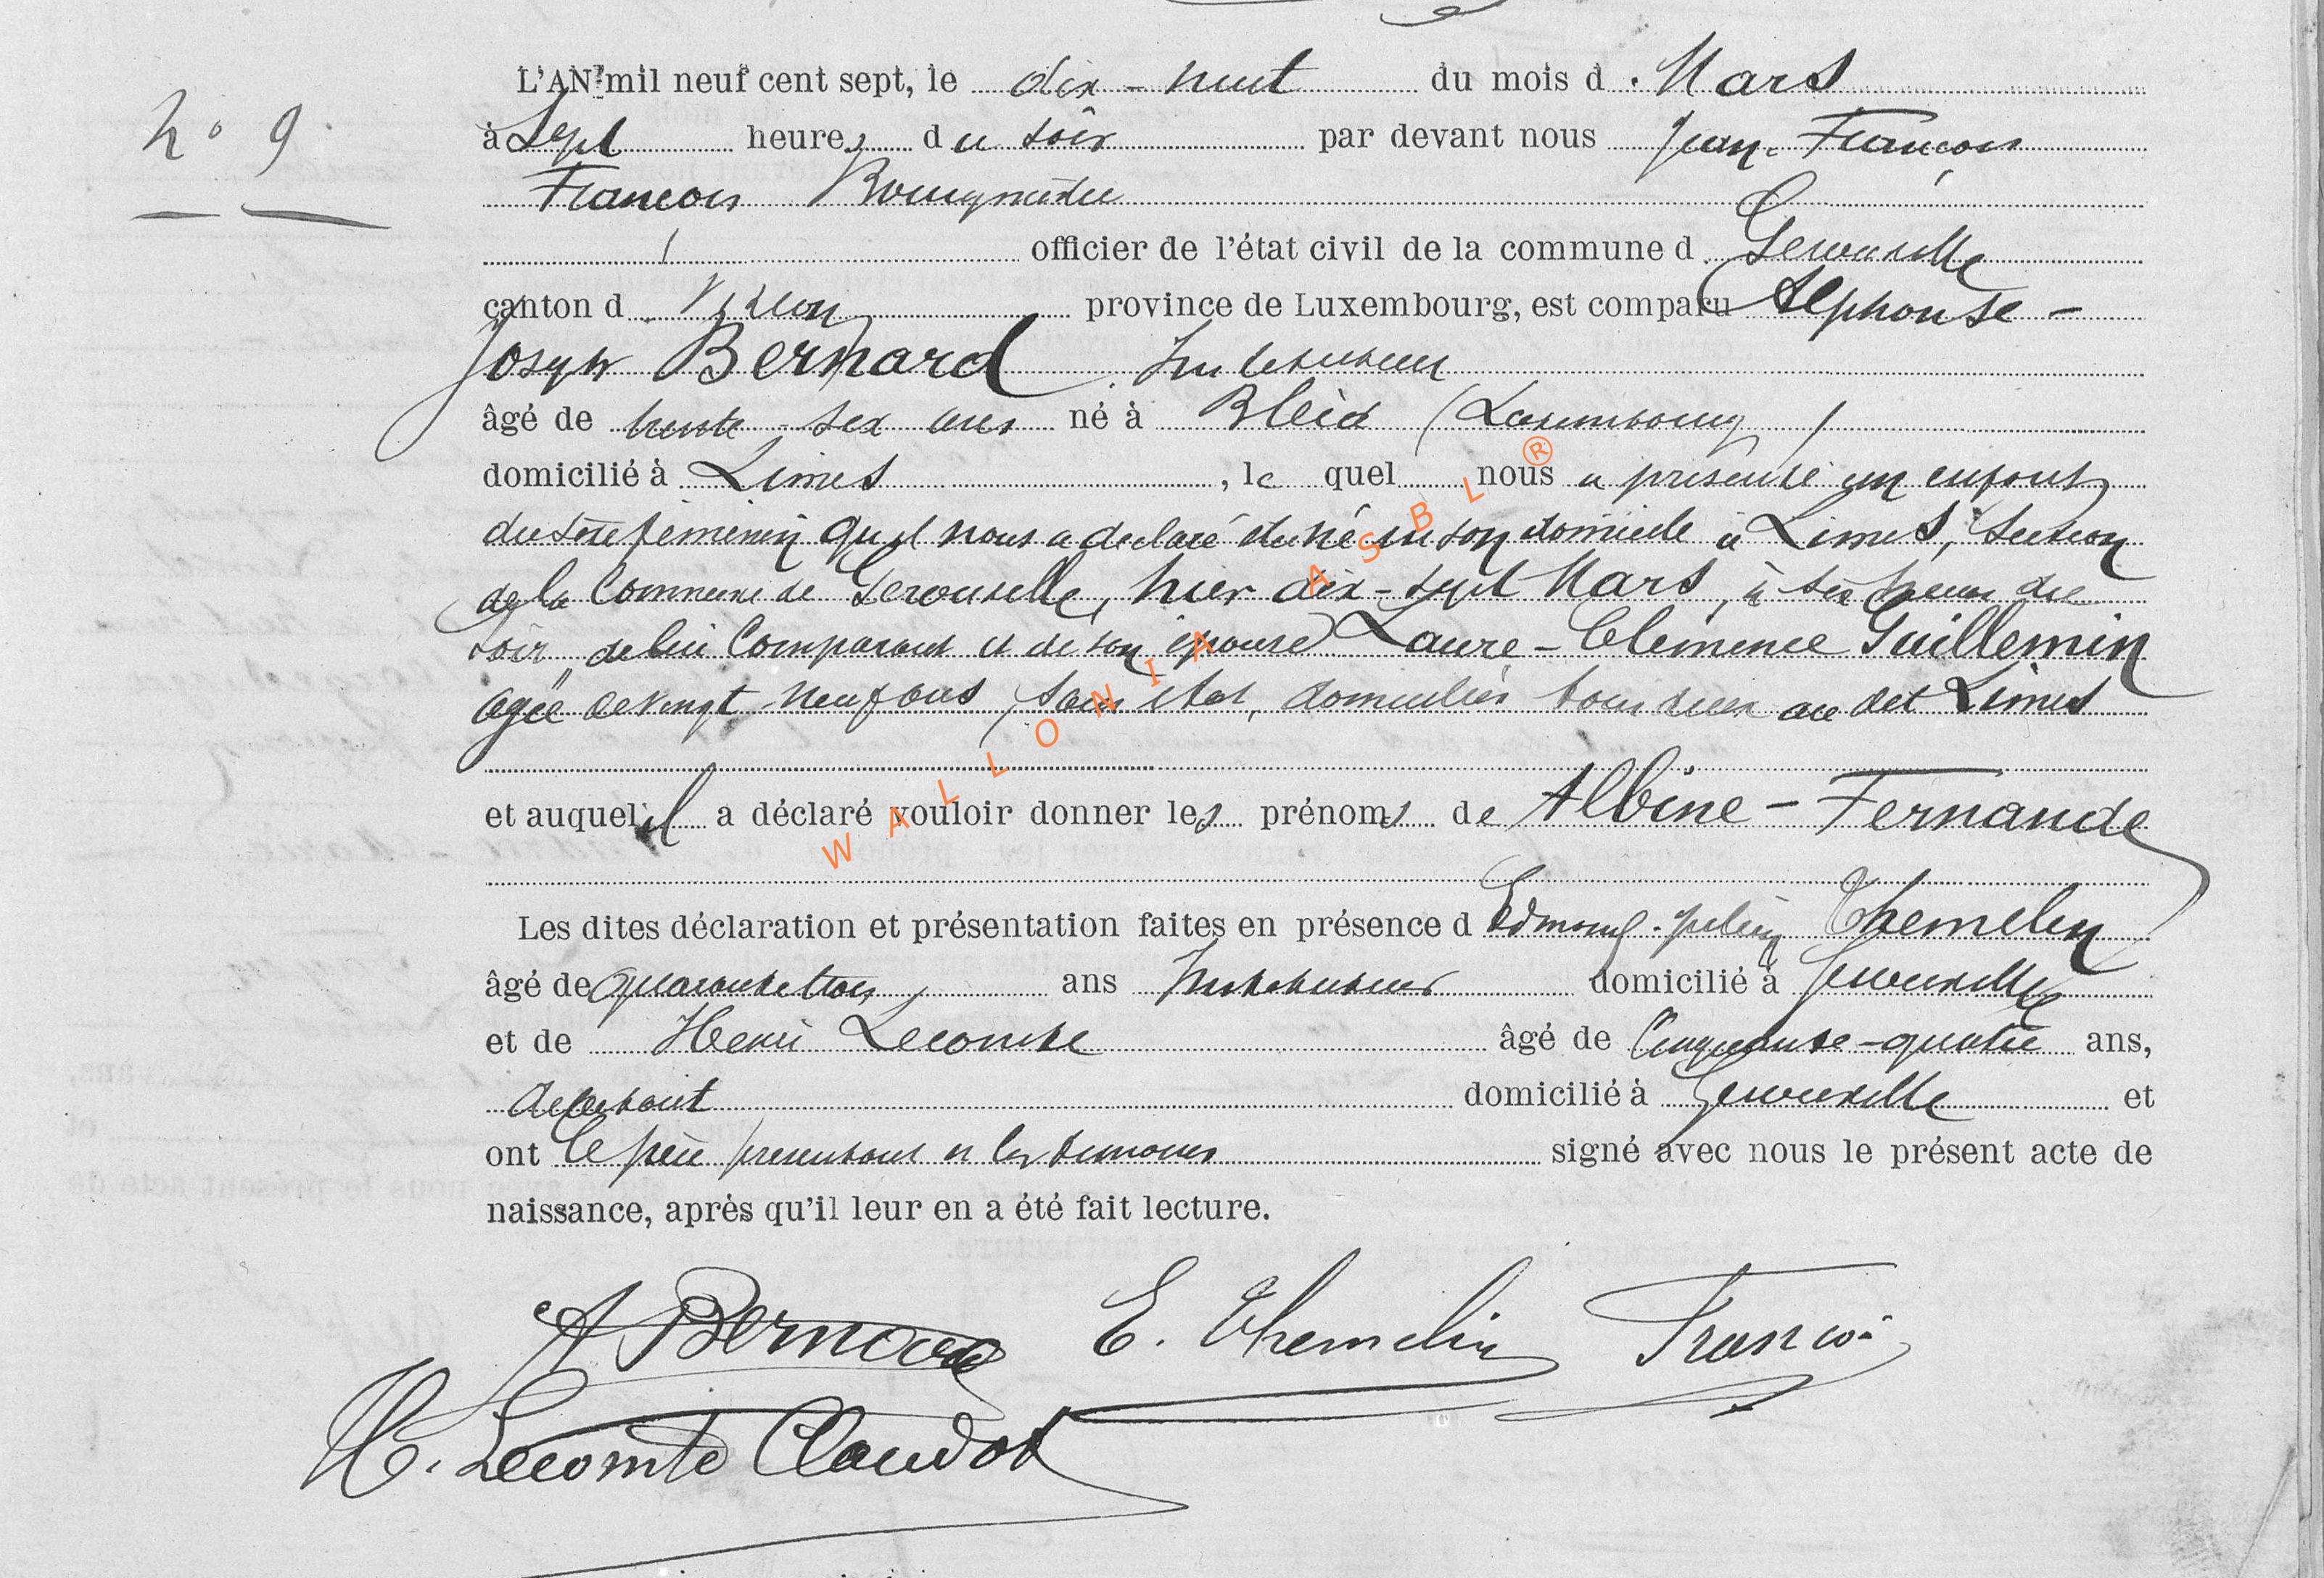 L'AN mil neuf cent sept, le dix-huit du mois d Mars
n° 9
à Sept heures du soir par devant nous Jean-François
François Bourgmestre
officier de l'état civil de la commune d Gerouville
canton d Virton province de Luxembourg, est comparu Alphonse-
Joseph Bernard Instituteur
âgé de trente-six ans né à Bleid (Luxembourg)
domicilié à Limes, le quel nous a présenté un enfant
du sexe féminin qu'il nous a declaré être né en son domicile à Limes, Section
de la Commune de Gerouville, hier dix-sept Mars, à six heures du
soir, de lui Comparant et de son épouse Laure-Clémence Guillemin
agée de vingt-neuf ans, sans état, domiciliés tous deux au dit Limes
et auquel il a déclaré vouloir donner les prénoms de Albine-Fernande
Les dites déclaration et présentation faites en présence d Edmond-Julien Themelin
âgé de quarante trois ans Instituteur domicilié à Gerouville
et de Henri Lecomte âgé de Cinquante-quatre ans,
domicilié à Gerouville et
ont le père presentant et les temoins signé avec nous le présent acte de
naissance, après qu'il leur en a été fait lecture.
A Bernard E. Themelin François
H. Lecomte Claudot
WALLONIA ASBL ®